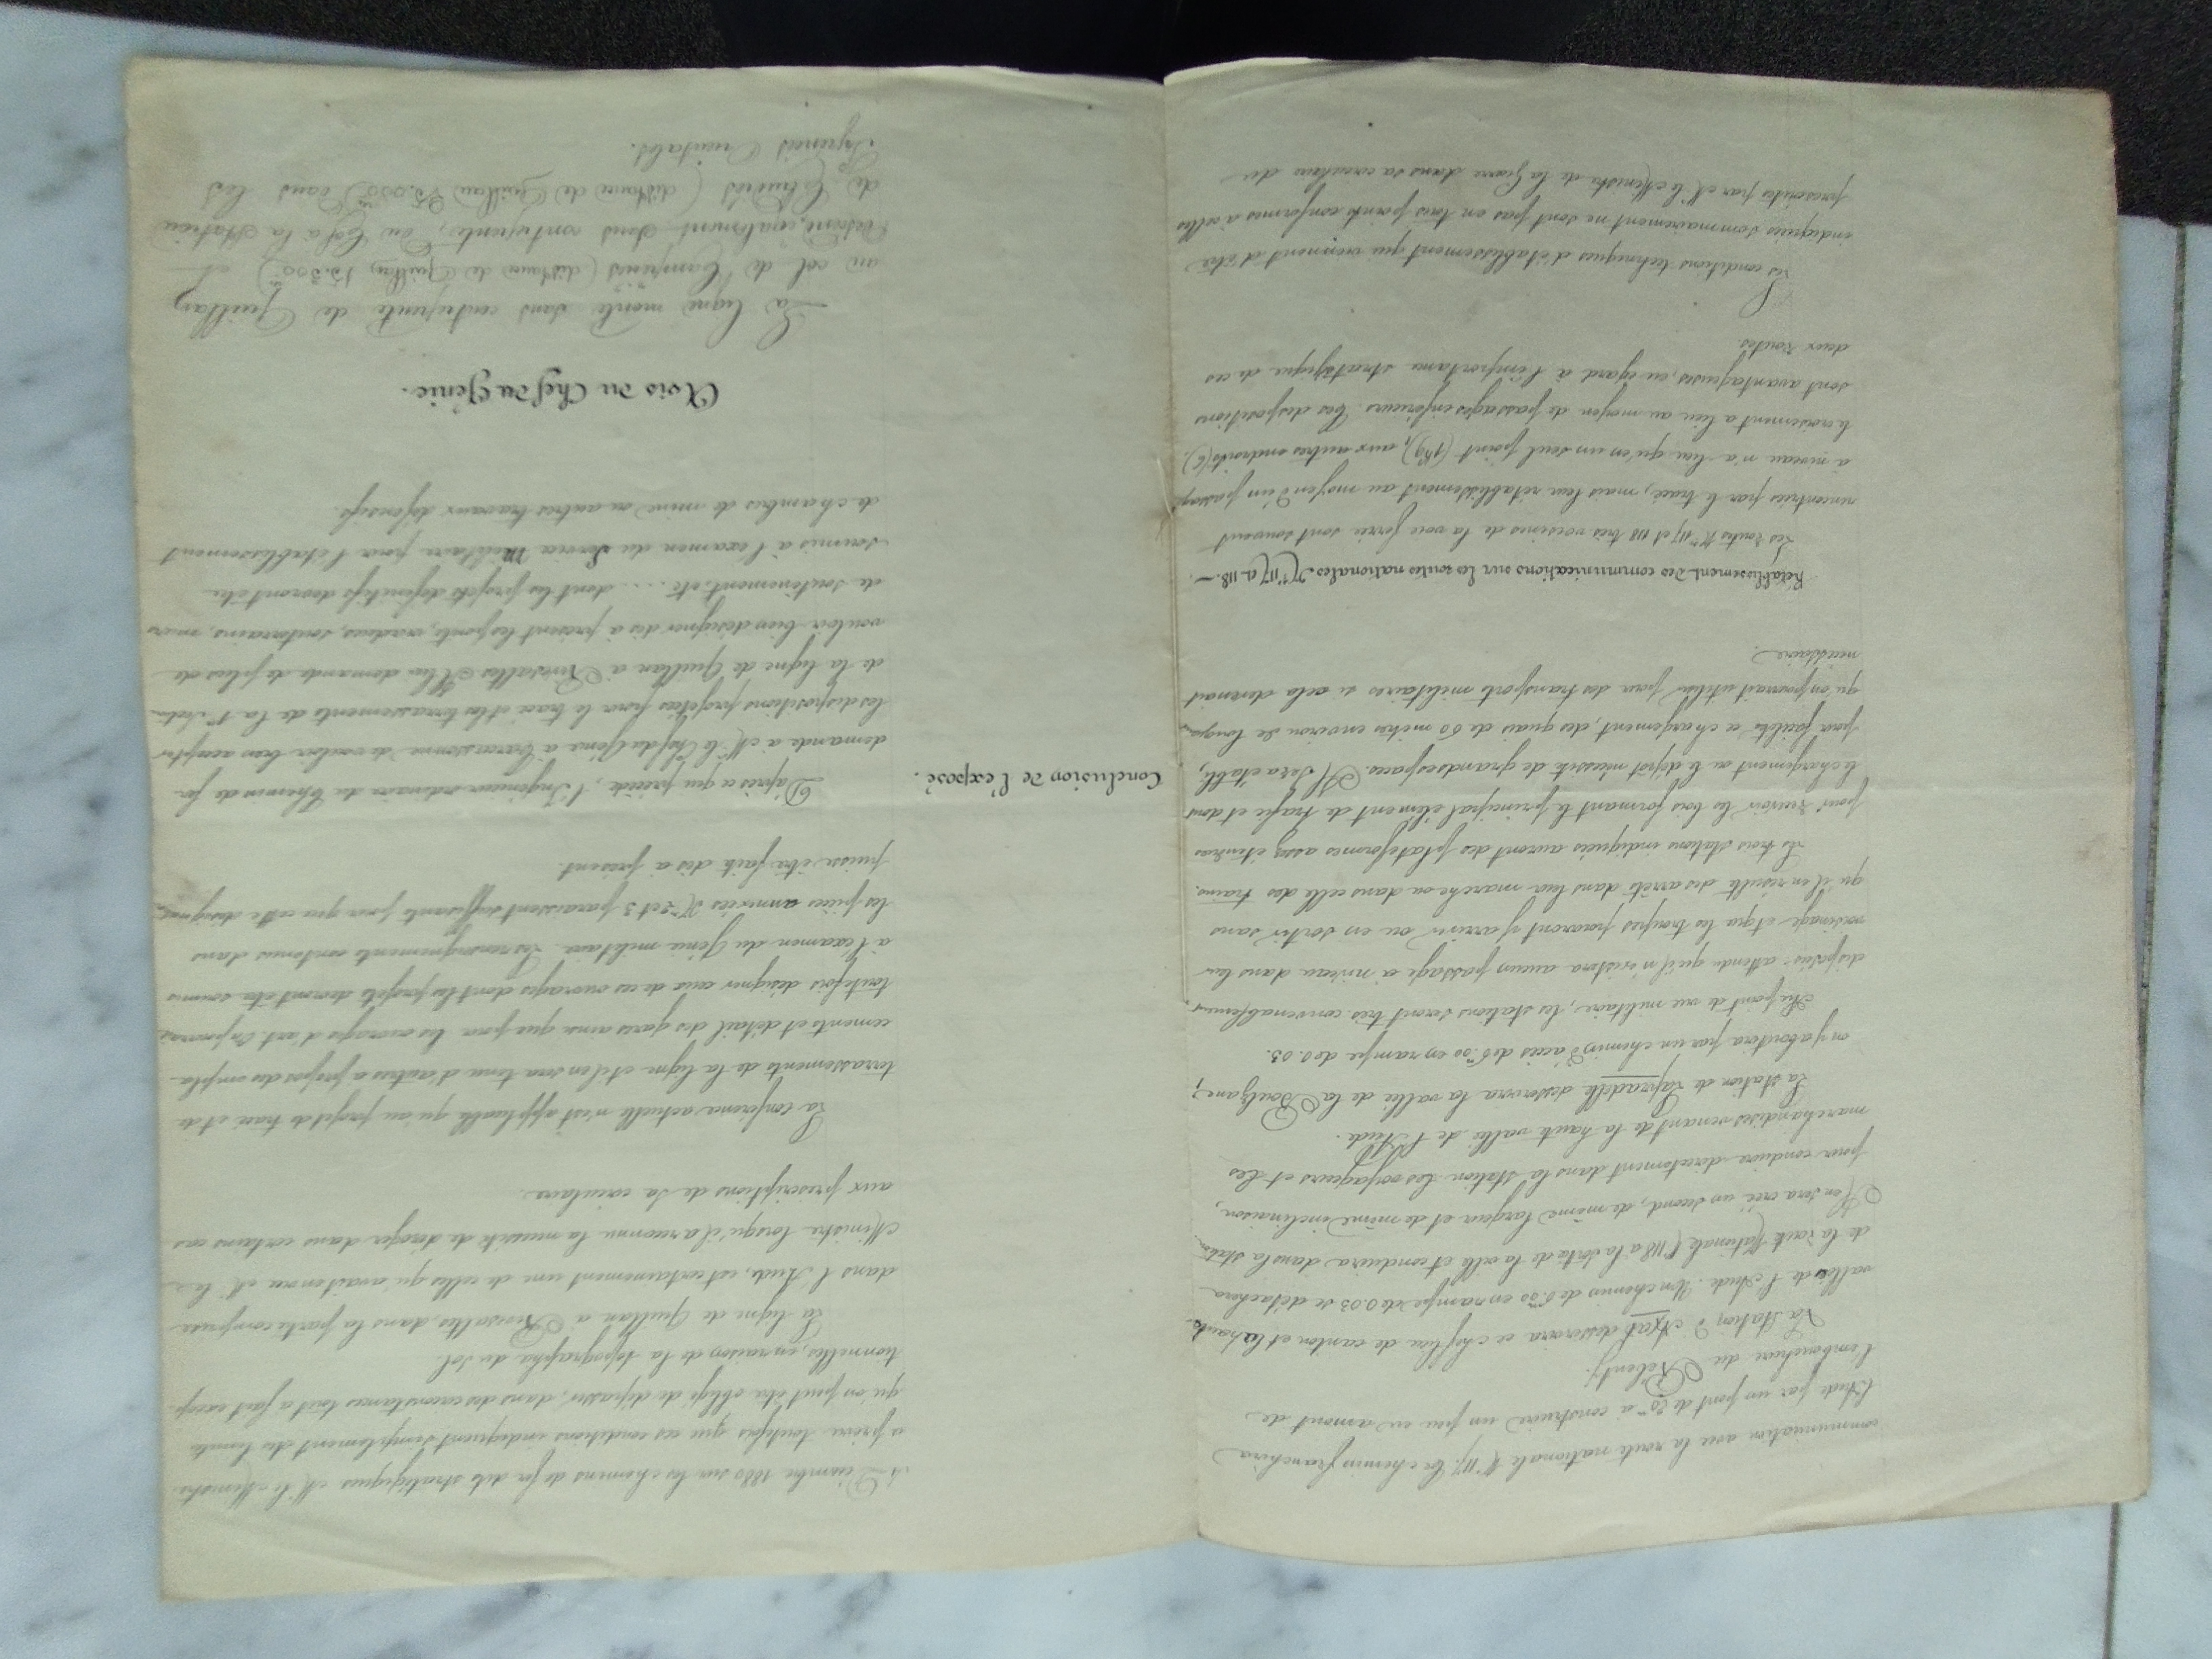 communication avec la route nationale N° 117. Ce chemin franchira
l'Aude par un pont de 20m à construire un peu en amont de
l'embouchure du Rébenty.
La Station d'Axat desservira ce chef lieu de canton et la haute
vallée de l'Aude. Un chemin de 6m00 en rampe de 0.03 se détachera
de la route Nationale N° 118 à la sortie de la ville et conduira dans la station.
Il en sera créé un second, de même largeur et de même inclinaison,
pour conduire directement dans la station les voyageurs et les
marchandises venant de la haute vallée de l'Aude.
La station de Lapradelle desservira la vallée de la Boulzane;
on y aboutira par un chemin d'accès de 6m00 en rampe de 0.03.
Au point de vue militaire, les stations seront très convenablement
disposées attendu qu'il n'existera aucun passage à niveau dans leur
voisinage et que les troupes pourront y arriver ou en sortir sans
qu'il en résulte des arrêts dans leur marche ou dans celle des trains.
Les trois stations indiquées auront des plateformes assez étendues
pour recevoir les bois formant le principal élément de trafic et dont
le chargement ou le dépôt nécessite de grands espaces. Il sera établi,
pour faciliter ce chargement, des quais de 60 mètres environ de longueur
qu'on pourrait utiliser pour des transports militaires si cela devenait
nécessaire.
Rétablissement des communications sur les routes nationales Nos 117 et 118. —
Les routes Nos 117 et 118 très voisines de la voie ferrée sont souvent
rencontrées par le tracé, mais leur rétablissement au moyen d'un passage
à niveau n'a lieu qu'en un seul point, aux autres endroits (6)
le croisement a lieu au moyen de passages inférieurs. Ces dispositions
sont avantageuses, eu égard à l'importance stratégique de ces
deux routes.
Les conditions techniques d'établissement qui viennent d'être
indiquées sommairement ne sont pas en tous points conformes à celles
prescrites par Mr le Ministre de la Guerre dans sa circulaire du
Décembre 1880 sur les chemins de fer dits stratégiques. Mr le Ministre
a prévu toutefois que ces conditions indiquent simplement des limites
qu'on peut être obligé de dépasser, dans des circonstances tout à fait excep-
tionnelles, en raison de la topographie du sol.
La ligne de Quillan à Rivesaltes, dans la partie comprise
dans l'Aude, est certainement une de celles qu'avait en vue Mr le
Ministre lorsqu'il a reconnu la nécessité de déroger dans certains cas
aux prescriptions de sa circulaire.
La conférence actuelle n'est applicable qu'au projet de tracé et de
terrassements de la ligne et il en sera tenu d'autres à propos des empla-
cements et détail des gares ainsi que pour les ouvrages d'art. On pourrait
toutefois désigner ceux de ces ouvrages dont les projets devront être soumis
à l'examen du Génie militaire. Les renseignements contenus dans
les pièces annexées Nos 2 et 3 paraissent suffisants pour que cette désignation
puisse être faite dès à présent.
Conclusion de l'exposé.
D'après ce qui précède, l'Ingénieur ordinaire du Chemin de fer
demande à Mr le Chef du Génie à Carcassonne de vouloir bien accepter
les dispositions projetées pour le tracé et les terrassements de la 1re Section
de la ligne de Quillan à Rivesaltes. Il lui demande de plus de
vouloir bien désigner dès à présent les ponts, viaducs, souterrains, murs
de soutènement, etc.... dont les projets définitifs devront être
soumis à l'examen du Service Militaire pour l'établissement
de chambres de mine ou autres travaux défensifs.
Avis du Chef du Génie.
La ligne monte sans contrepente de Quillan
au col de Campérié (distance de Quillan 15.300m) et
descend, également sans contrepente, du Col à la Station
de Caudiès (distance de Quillan 25.000m) dans les
Pyrénées Orientales.